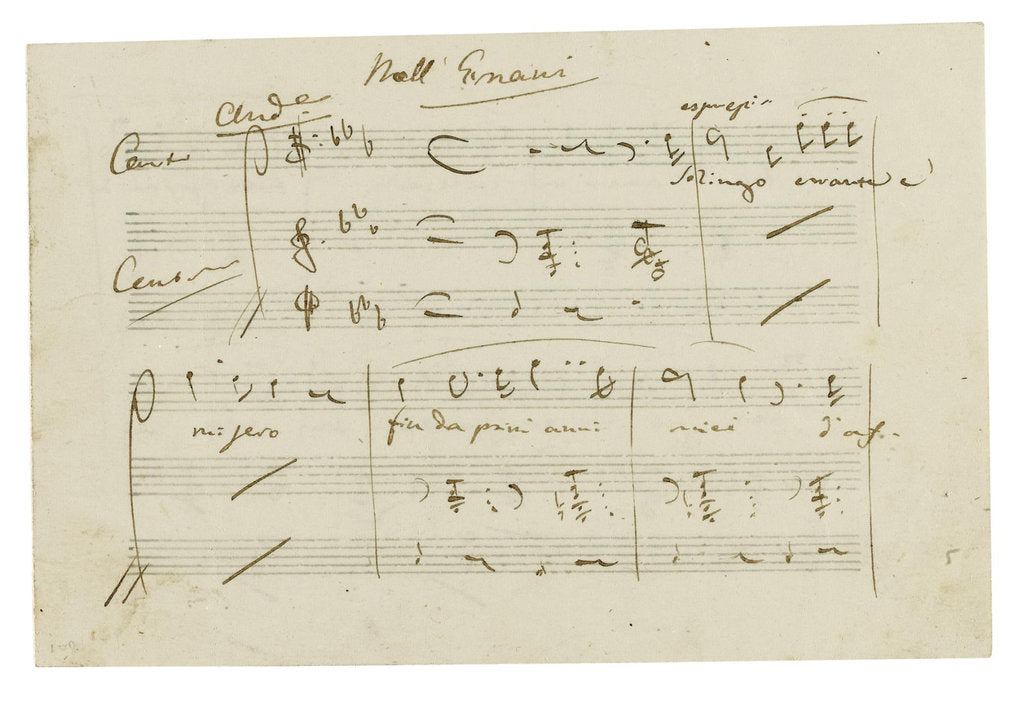 Nell' Ernani
And.e
Canto
espress.
Solingo errante e
misero
fin da primi anni miei d'af..
5